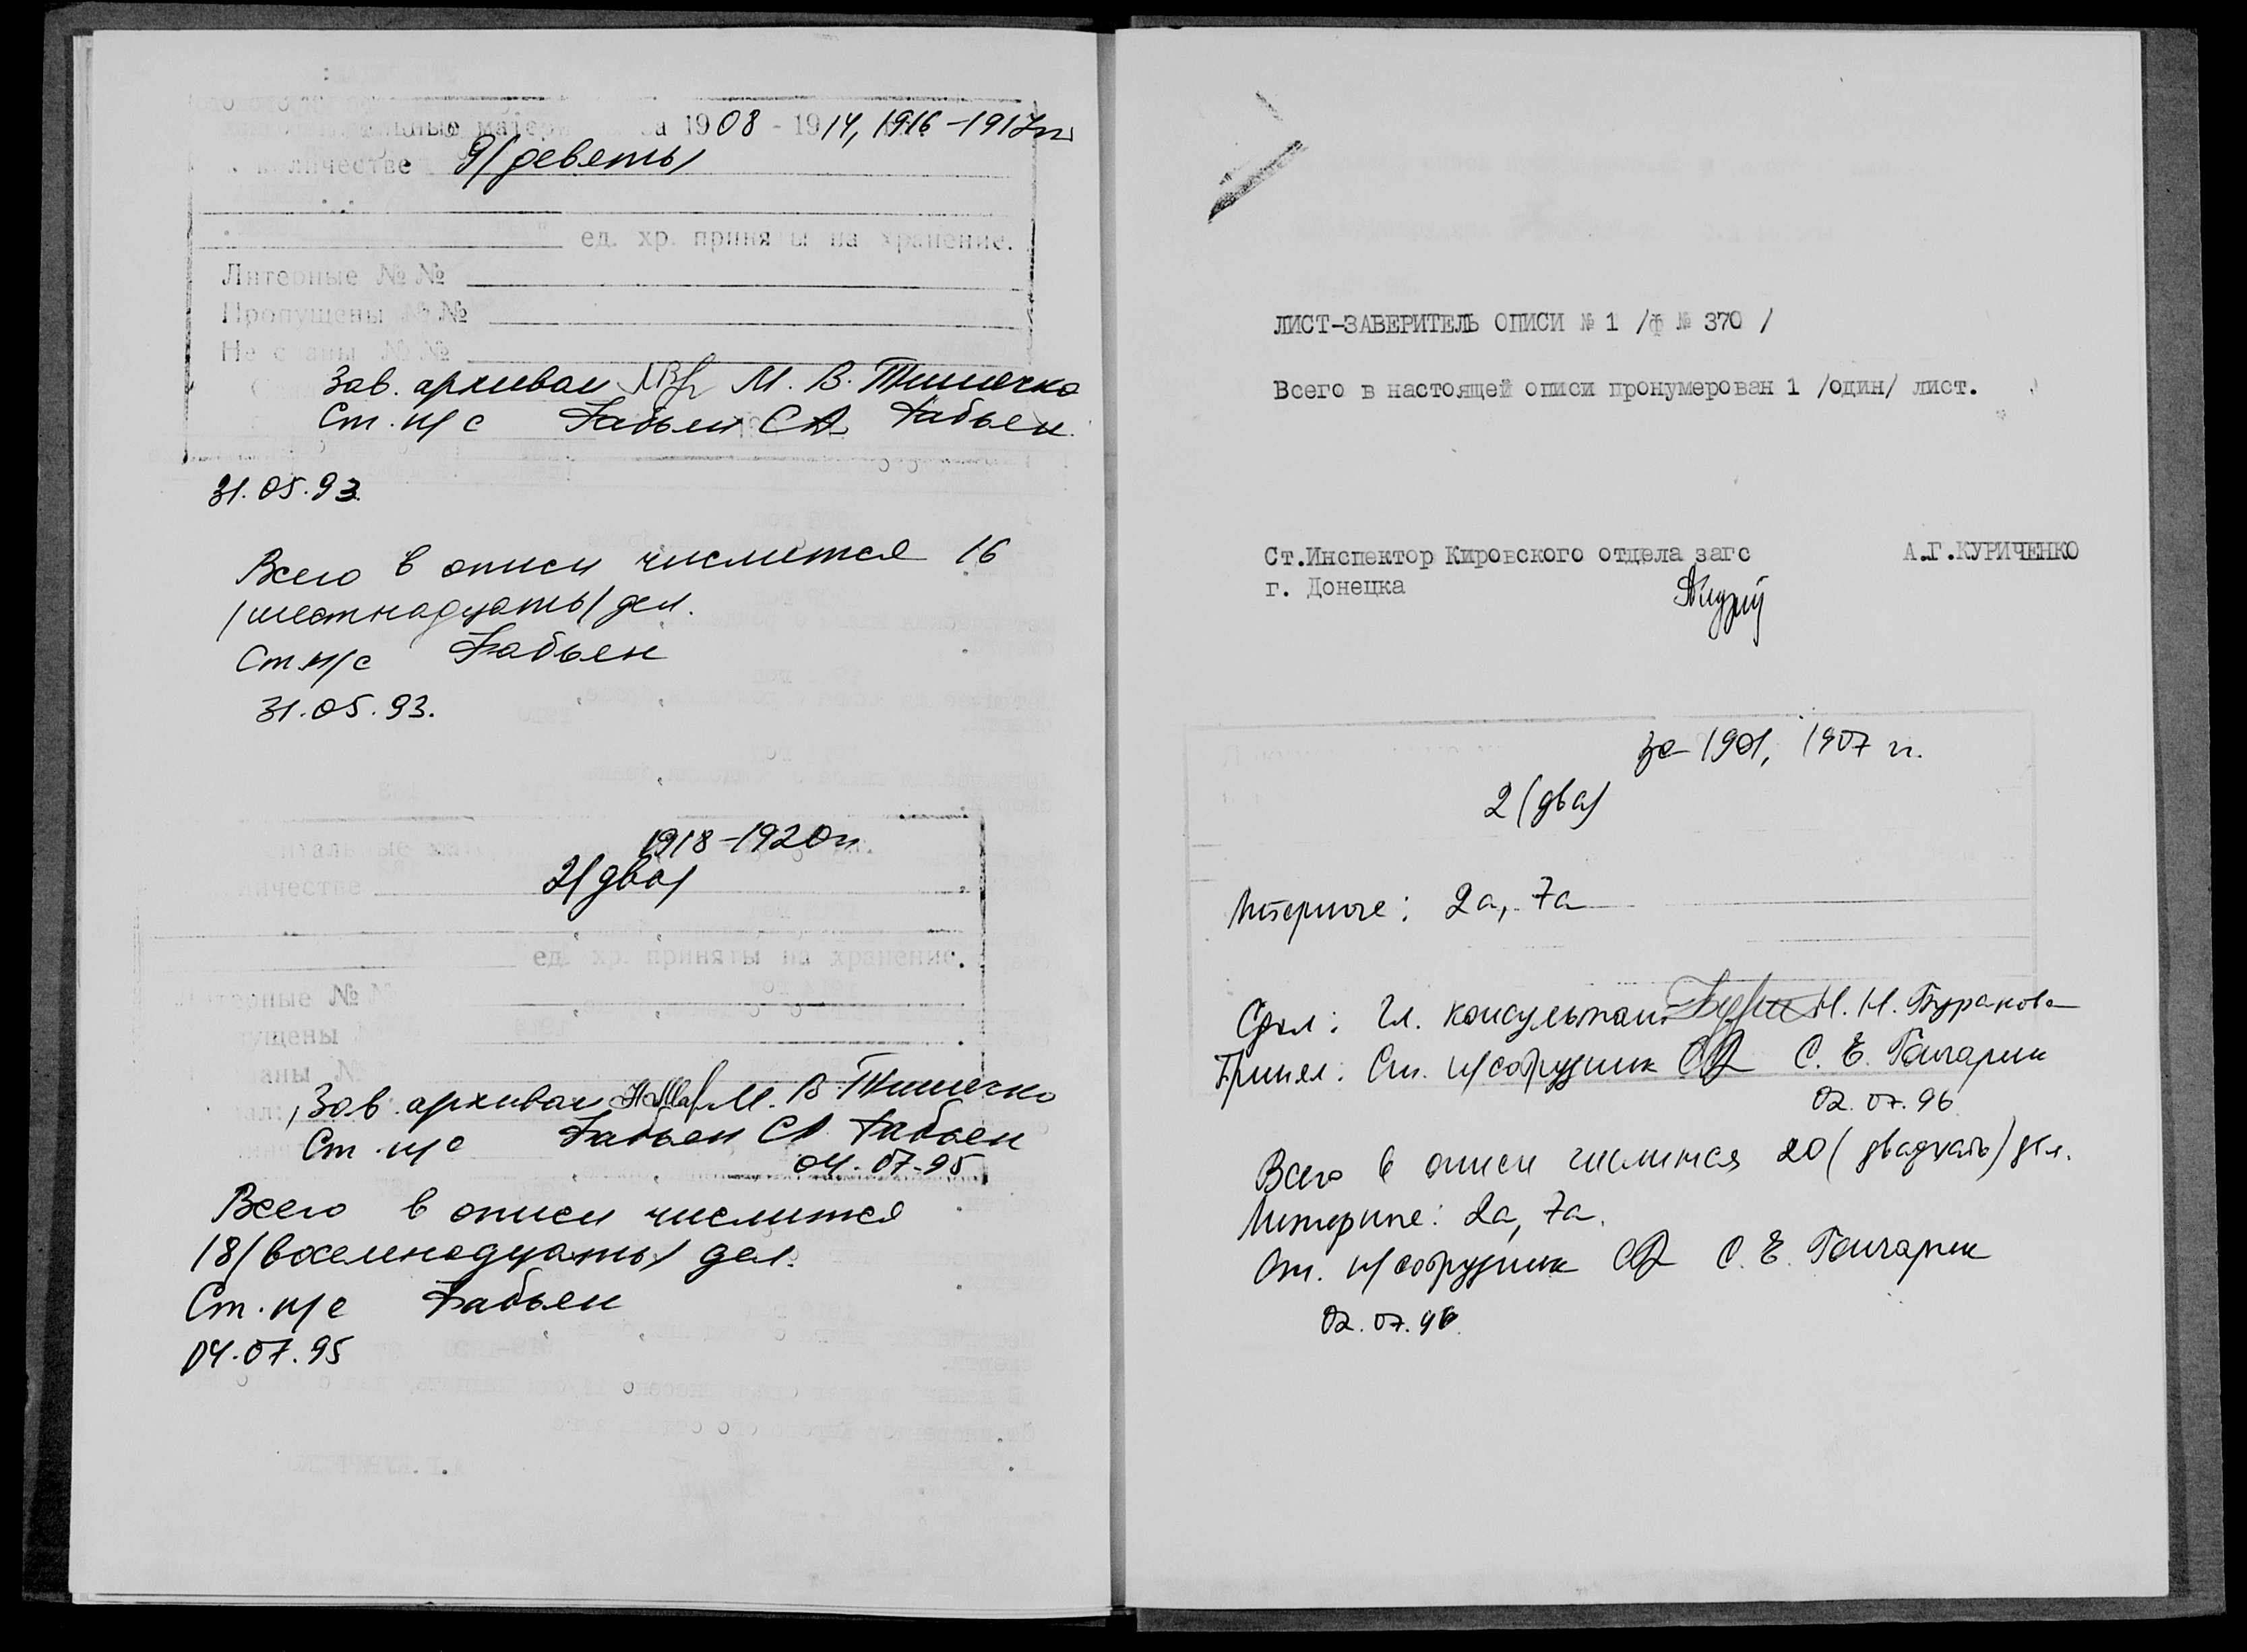 материалы за 1908 - 1914, 1916-1917 гг
количестве 9/девять/
ед. хр. приняты на хранение.
Литерные №№
Пропущены №№
Не сданы №№
Зав. архивом М. В. Тимечко
Ст. н/с Бабьен СА Бабьен
31.05.93.
Всего в описи числится 16
/шестнадцать/ дел.
Ст. н/с Бабьен
31.05.93.
1918-1920 гг.
количестве 2/два/
ед. хр. приняты на хранение.
Литерные №№
Пропущены
Зав. архивом М. В. Тимечко
Ст. н/с Бабьен СА Бабьен
04.07.95
Всего в описи числится
18/восемнадцать/ дел.
Ст. н/с Бабьен
04.07.95
ЛИСТ-ЗАВЕРИТЕЛЬ ОПИСИ № 1 /ф № 370 /
Всего в настоящей описи пронумерован 1 /один/ лист.
Ст.Инспектор Кировского отдела загс А.Г.КУРИЧЕНКО
г. Донецка
за 1901, 1907 гг.
2 (два)
Литерные: 2а, 7а
Сдал: Гл. консультант Н. Н. Буракова
Принял: Ст. н/сотрудник С. Е. Гончарик
02.07.96
Всего в описи числится 20 (двадцать) дел.
Литерные: 2а, 7а.
Ст. н/сотрудник С. Е. Гончарик
02.07.96.